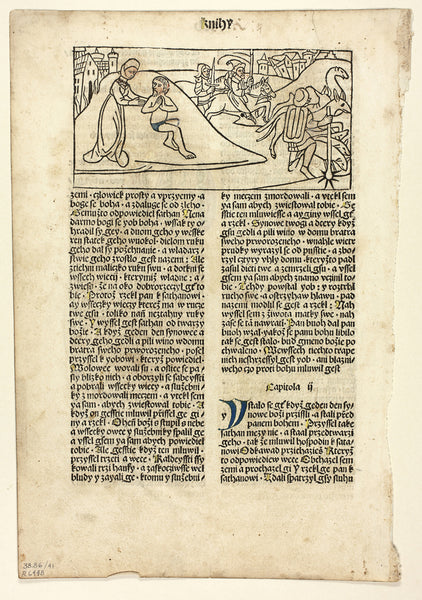 knihy
zemi · czlowiek prosty a vprzymy · a
bogie se boha · a zdaluge se od zleho ·
Gemuzto odpowiediel sathan Nena
darmo bogi se yob boha · wssak ty o
hradil sy gey · a duom geho y weske
ren statek geho wuokol · dielom ruku
geho dal sy pozehnanie · a wladarz
stwie geho zroslo gest nazemi · Ale
ztiehni maliczko ruku swu · a dotkni se
wssech wieci · kterymiz wladne : a
zwiesz · ze na oko dobrorzeczyl geto
bie · Protoz rzekl pan k sathanowi
ay wsseczky wieczy kterez ma w ruce
twe gsu · toliko nan neztahuy ruky
swe · Y wyssel gest sathan od twarzy
bozie · A kdyz geden den synowee a
dcery geho gedli a pili wino wdomu
bratra sweho prworozeneho · posel
przyssel k yobowi · ktery powiediel
Wolowee worali su · a oslice se pa ·
sly bliz ko nich · a oborzyli se sabeyssti
a pobrali wsseczky wieczy · a sluzebni
ky zmordowali meczem · a vtekl sem
ya sam · abych zwiestowal tobie · A
kdyz on gesstie mluwil prissel ge gi ·
ny a rzekl · Ohen bozi o stupil o nebe
a wssecky owce y sluzebniky spalil ge
a vssl gsem ya sam abych powiediel
tobie · Ale gesstie kdyz ten mluwil ·
przyssel trzeti a wece · Kaldeyssti ssy
kowali trzi hauffy · a zaskocziwsse wel
bludy y zayali ge · k tomu y sluzebni
ky meczem zmordowali · a vtekl sem
ya sam abych zwiestowal tobie · Ge
sstie ten mluwiesse a ay giny wssel ge
a rzekl · Synowe twogi a dcery kdyz
gsu gedli a pili wino w domu bratra
sweho prworozeneho · wnahle wietr
prudky wyrazyl se od pusstie · a zbo
rzyl cztyry vhly domu · kteryzto pad
zasul dieti twe a zemrzeli gsu · a vssel
gsem ya sam abych znamo vcinil to
bie · Tehdy powstal yob : y roztrhl
rucho swe a ostrzyhaw hlawu · pad
na zemi modlil se gest a rzekl : Nah
wyssel sem z ziwota matky swe · nah
zase se ta nawrati · Pan buoh dal pan
buoh wzal · yakoz se panu bohu libilo
tak se gest stalo · bud gmeno bozie po
chwaleno · Wewssech tiechto trape
nich nezhrzessyl gest yob · ani blazni-
weho czo proti bohu mluwil gest
Capitola ij
Vstalo se ge kdyz geden den sy-
nowe bozi prissli · a stali przed
panem bohem · Przyssel take
sathan mezy nie · a staal przedtwarzi
geho · tak ze mluwil hospodin k sata-
nowi Odkawad przichazies Kteryz
to odpowiedew wece Obchazel sem
zemi a prochazel gi Y rzekl ge pan k
sathanowi · Zdali spatrzyl gsy sluhu
38.86/11
R6448